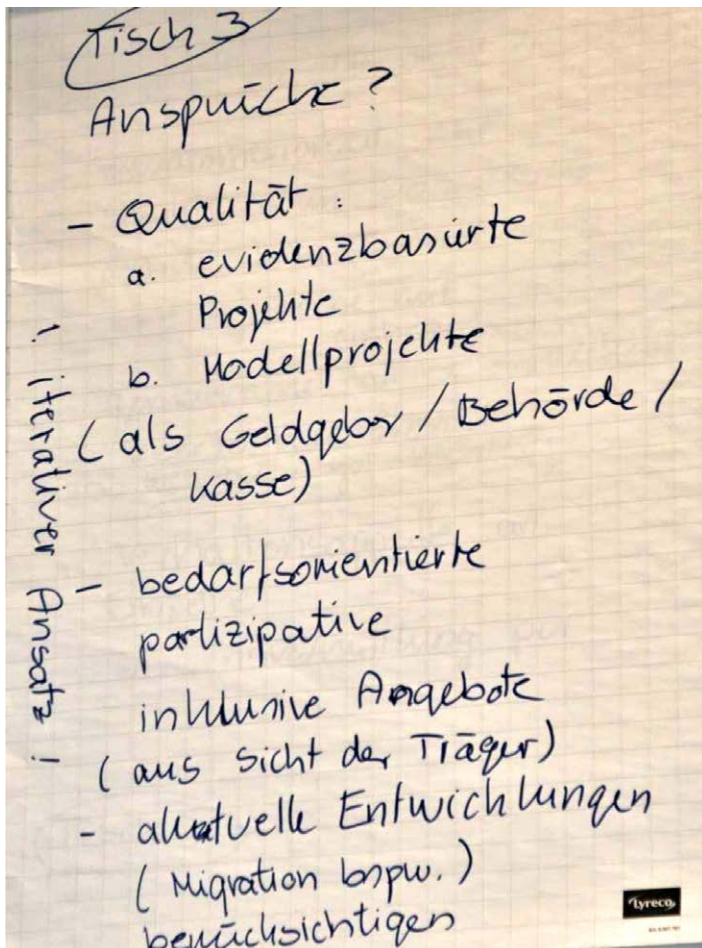 Tisch 3
Ansprüche?
- Qualität:
a. evidenzbasierte
Projekte
b. Modellprojekte
(als Geldgeber / Behörde /
Kasse)
- bedarfsorientierte
partizipative
inklusive Angebote
(aus Sicht der Träger)
- aktuelle Entwicklungen
(Migration bspw.)
berücksichtigen
! iterativer Ansatz !
Lyreco